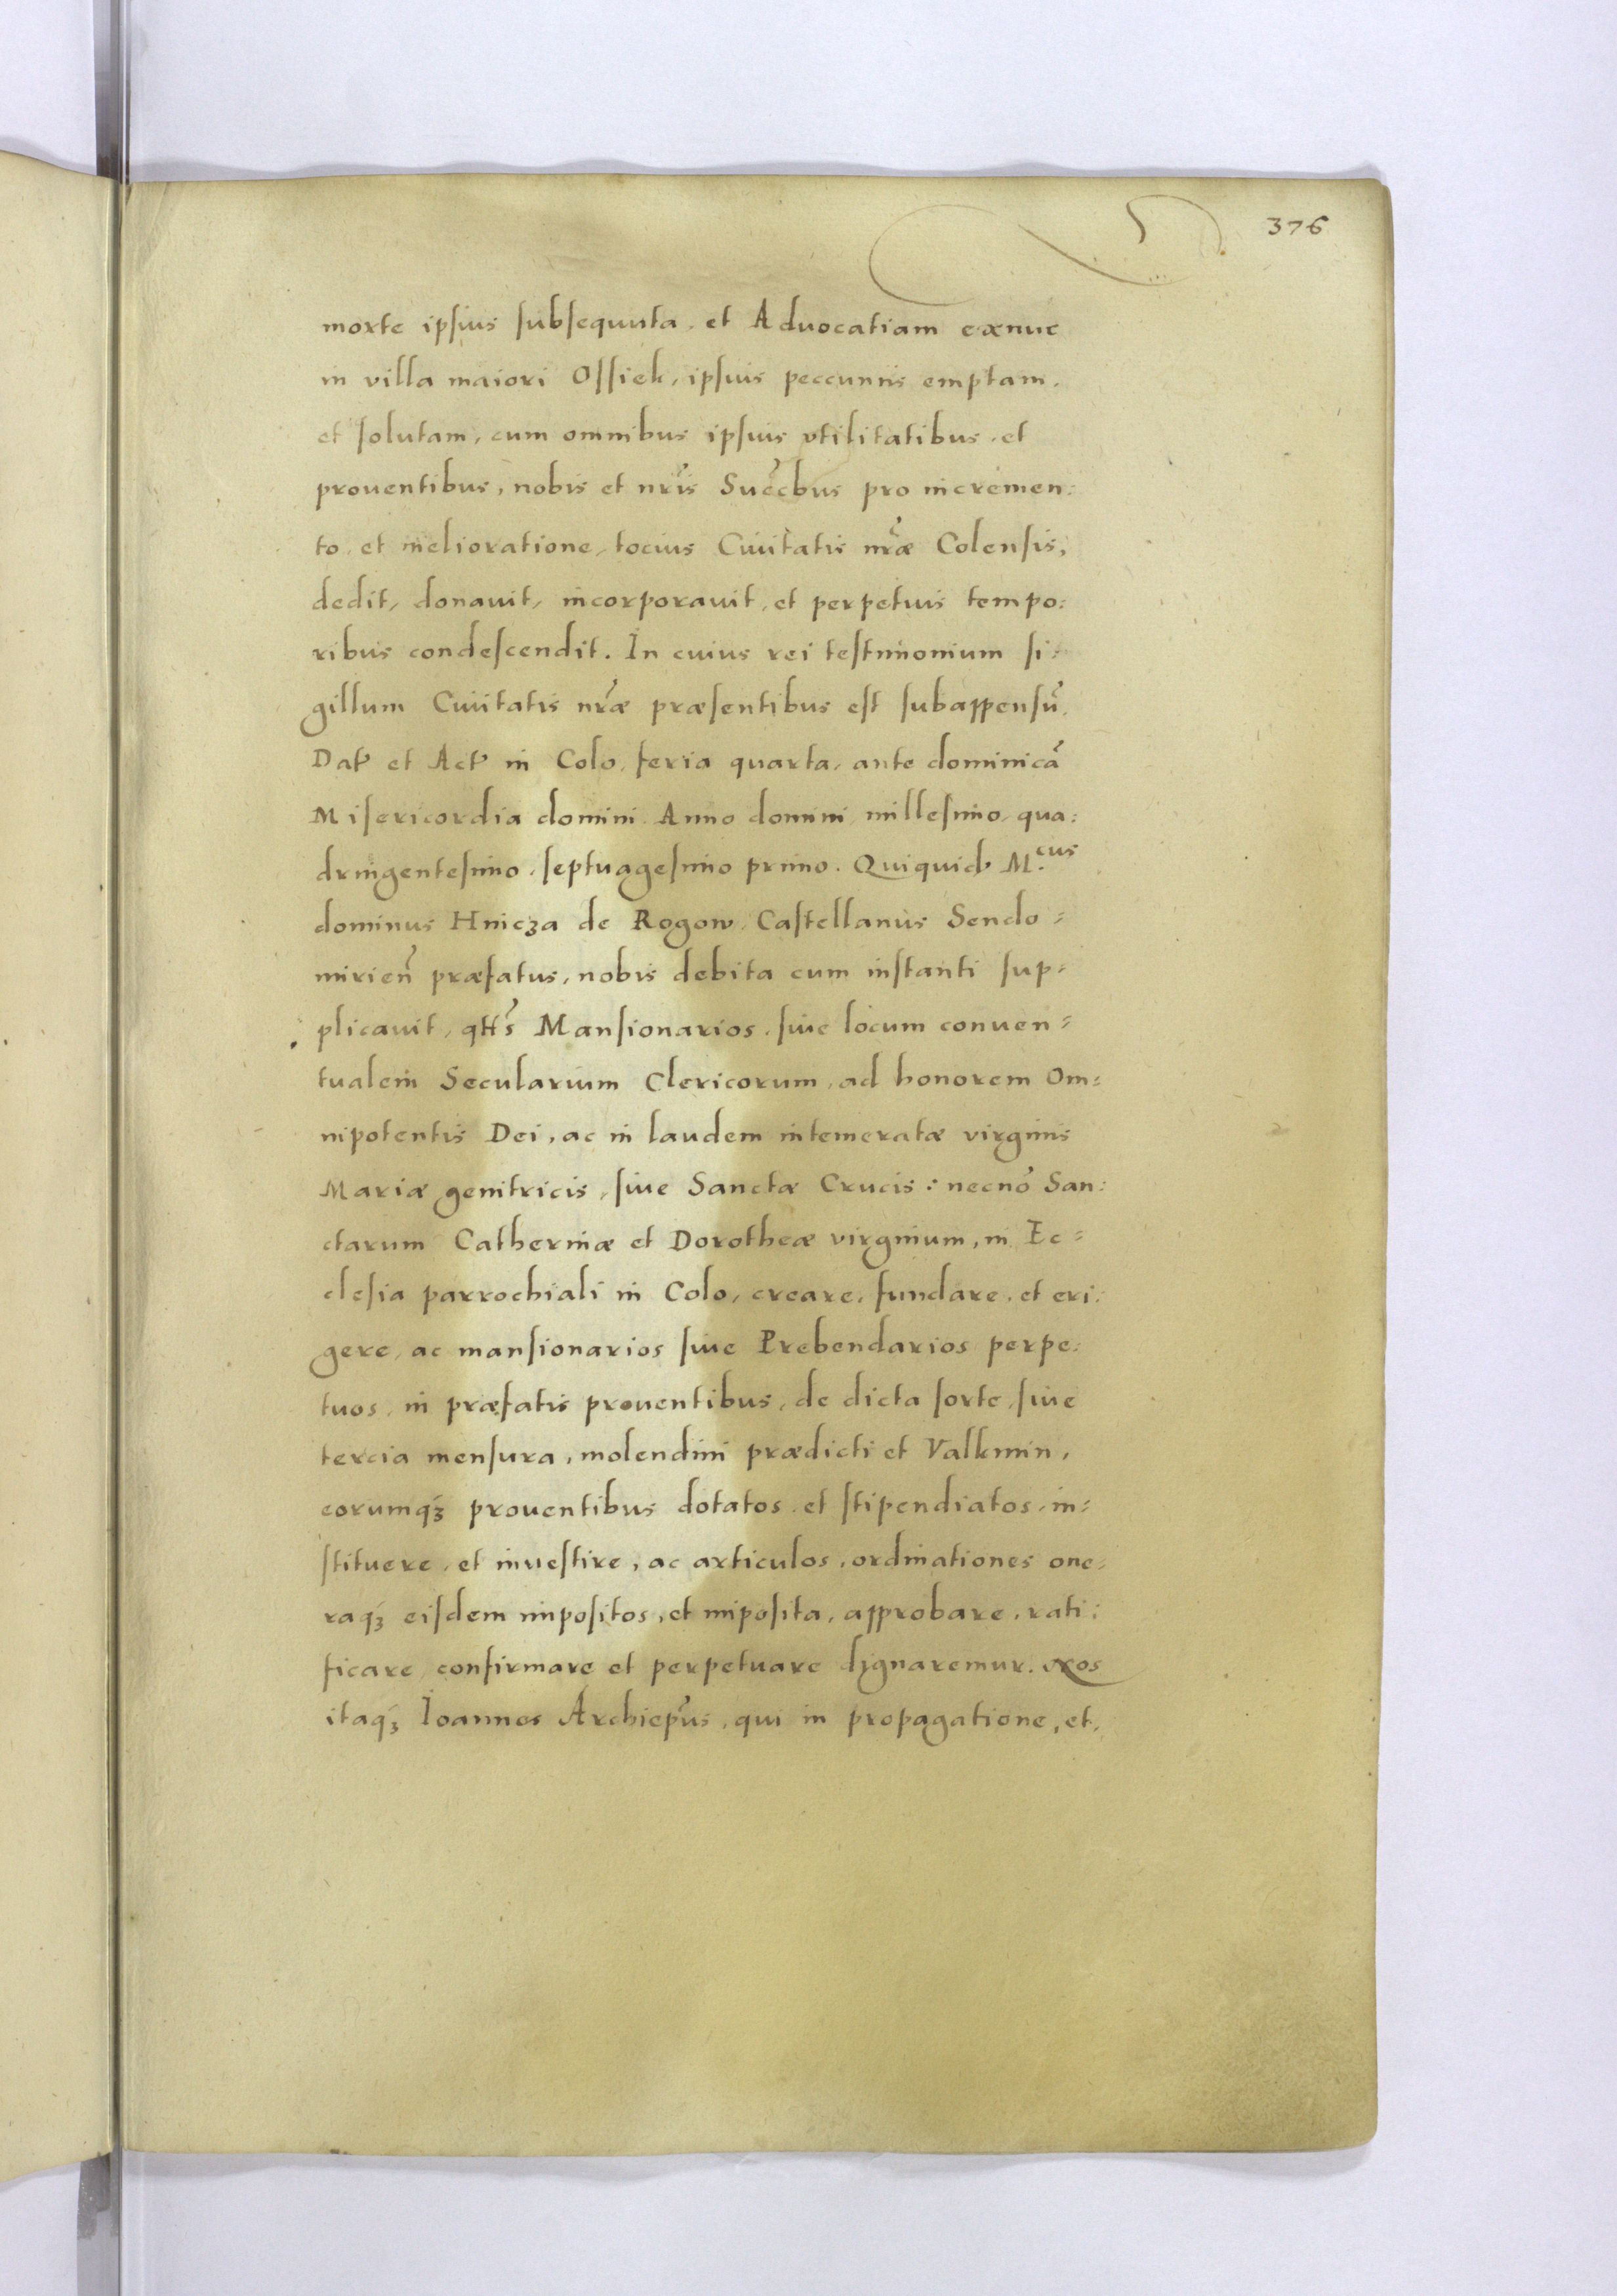 376
morte ipſius ſubſequuta, et Aduocatiam exnuc
in villa maiori Oſſiek, ipſius peccuniis emptam,
et ſolutam, cum omnibus ipſius vtilitatibus, et
prouentibus, nobis et nr̃is Succ̃bus pro incremen:
to, et melioratione, tocius Ciuitatis nr̃æ Colenſis,
dedit, donauit, incorporauit, et perpetuis tempo:
ribus condeſcendit. In cuius rei teſtimonium ſi:
gillum Ciuitatis nr̃æ præſentibus eſt ſubappenſũ.
Dat̃ et Act̃ in Colo, feria quarta, ante dominicã
Miſericordia domini Anno domini milleſimo, qua:
dringenteſimo, ſeptuageſimo primo. Quiquid M.cus
dominus Hnicza de Rogow, Caſtellanus Sendo=
mirien̄ præfatus, nobis debita cum inſtanti ſup=
plicauit, qtt̃s Manſionarios, ſiue locum conuen=
tualem Secularium Clericorum, ad honorem Om=
nipotentis Dei, ac in laudem intemeratæ virginis
Mariæ genitricis, ſiue Sanctæ Crucis: necnõ San:
ctarum Catherinæ et Dorotheæ virginum, in Ec=
cleſia parrochiali in Colo, creare, fundare, et eri:
gere, ac manſionarios ſiue Prebendarios perpe:
tuos, in præfatis prouentibus, de dicta ſorte, ſiue
tercia menſura, molendini prædicti et Valkmin,
eorumqꝫ prouentibus dotatos, et ſtipendiatos, in=
ſtituere, et inueſtire, ac articulos, ordinationes one=
raqꝫ eiſdem impoſitos, et impoſita, approbare, rati:
ficare, confirmare et perpetuare dignaremur. Nos
itaqꝫ Ioannes Archiep̃us, qui in propagatione, et,